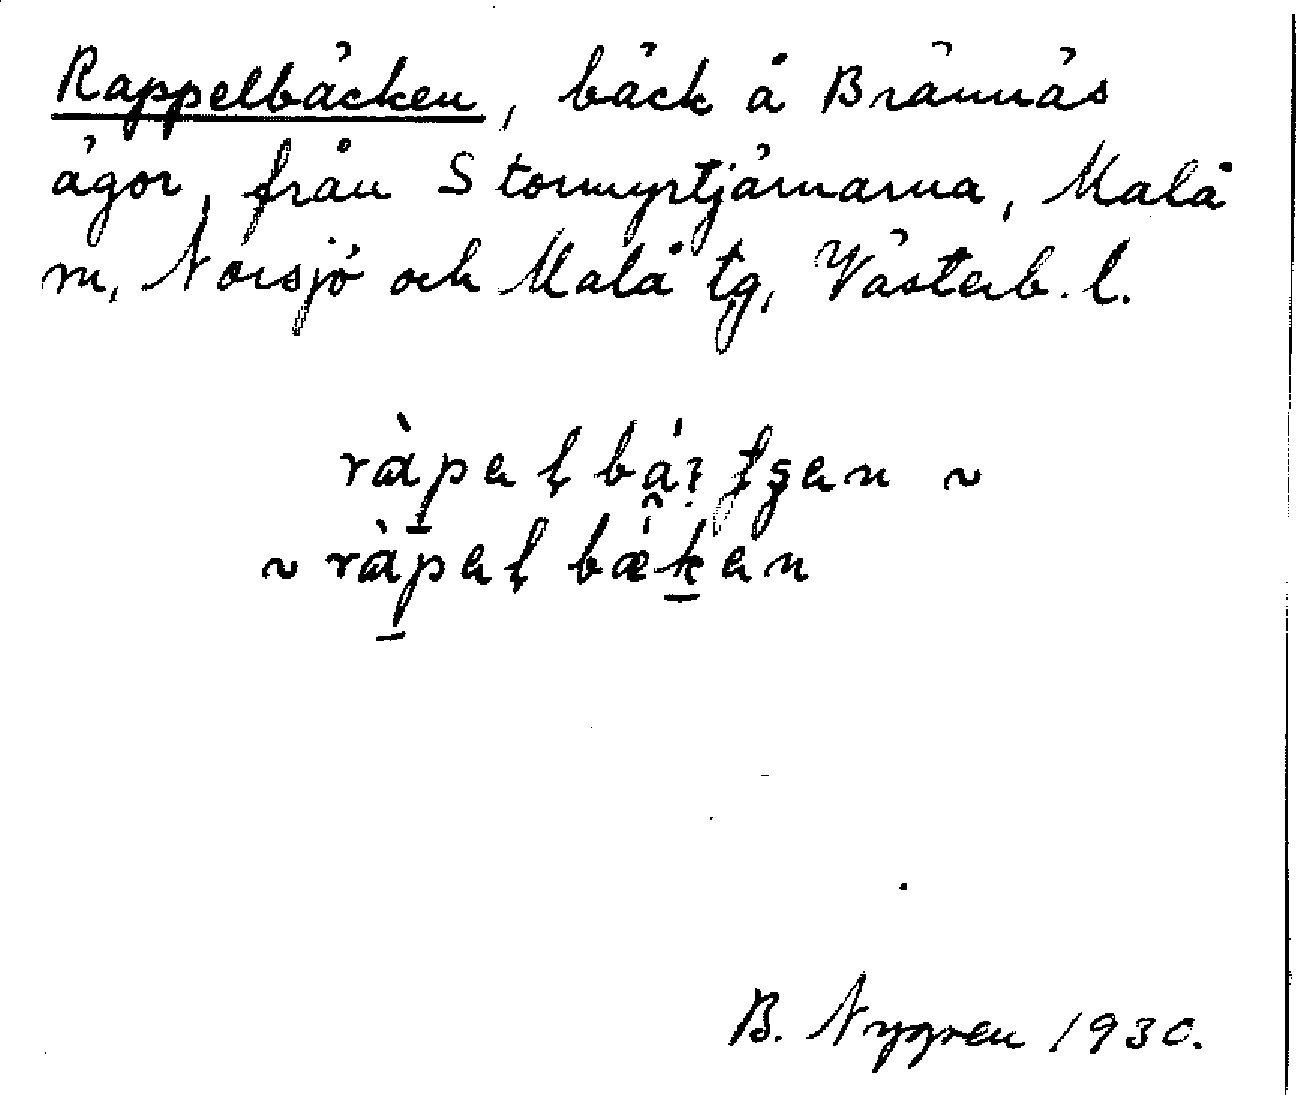 Rappelbäcken, bäck å Brännäs
ägor, från Stormyrtjärnarna, Malå
m, Norsjö och Malå tg, Västerb. l.
ràpeḷ
~ ràpeḷbæken
B. Nygren 1930.